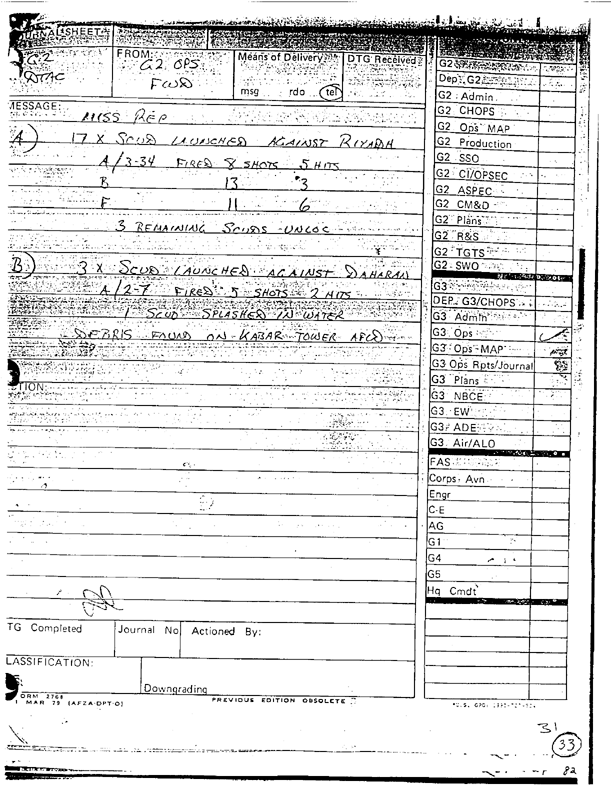 JOURNAL SHEET
G2
DTAC
FROM:
G2 OPS
FWD
Means of Delivery
msg rdo tel
DTG Received
MESSAGE:
MISS REP
A) 17 X SCUD LAUNCHED AGAINST RIYADH
A/3-34 FIRED 8 SHOTS 5 HITS
B 13 3
F 11 6
3 REMAINING SCUDS UNLOC
B) 3 X SCUD LAUNCHED AGAINST DAHARAN
A/2-7 FIRED 5 SHOTS 2 HITS
1 SCUD SPLASHED IN WATER
DEBRIS FOUND ON KABAR TOWER AFLD
TION:
TG Completed
Journal No
Actioned By:
LASSIFICATION:
Downgrading
ORM 2768
1 MAR 79 (AFZA-DPT-O)
PREVIOUS EDITION OBSOLETE
G2
Dep. G2
G2 Admin
G2 CHOPS
G2 Ops MAP
G2 Production
G2 SSO
G2 CI/OPSEC
G2 ASPEC
G2 CM&D
G2 Plans
G2 R&S
G2 TGTS
G2 SWO
G3
DEP. G3/CHOPS
G3 Admin
G3 Ops
G3 Ops MAP
G3 Ops Rpts/Journal
G3 Plans
G3 NBCE
G3 EW
G3 ADE
G3 Air/ALO
FAS
Corps Avn
Engr
C-E
AG
G1
G4
G5
Hq Cmdt
31
33
82